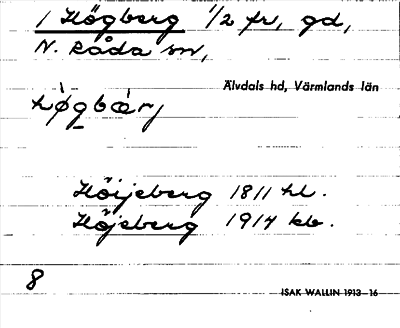 1 Högberg 1/2 fr, gd,
N. Råda sn,
Älvdals hd, Värmlands län
hø̀gbæ̀rj
Höijeberg 1811 hl.
Höjeberg 1914 kb.
8
ISAK WALLIN 1913-16